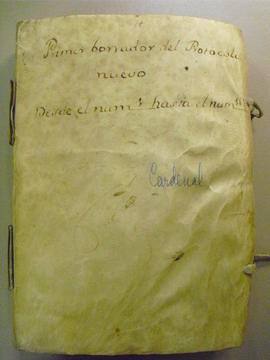 Primer borrador del Protocolo
nuevo
Desde el num.º hasta el num.º
Cardenal